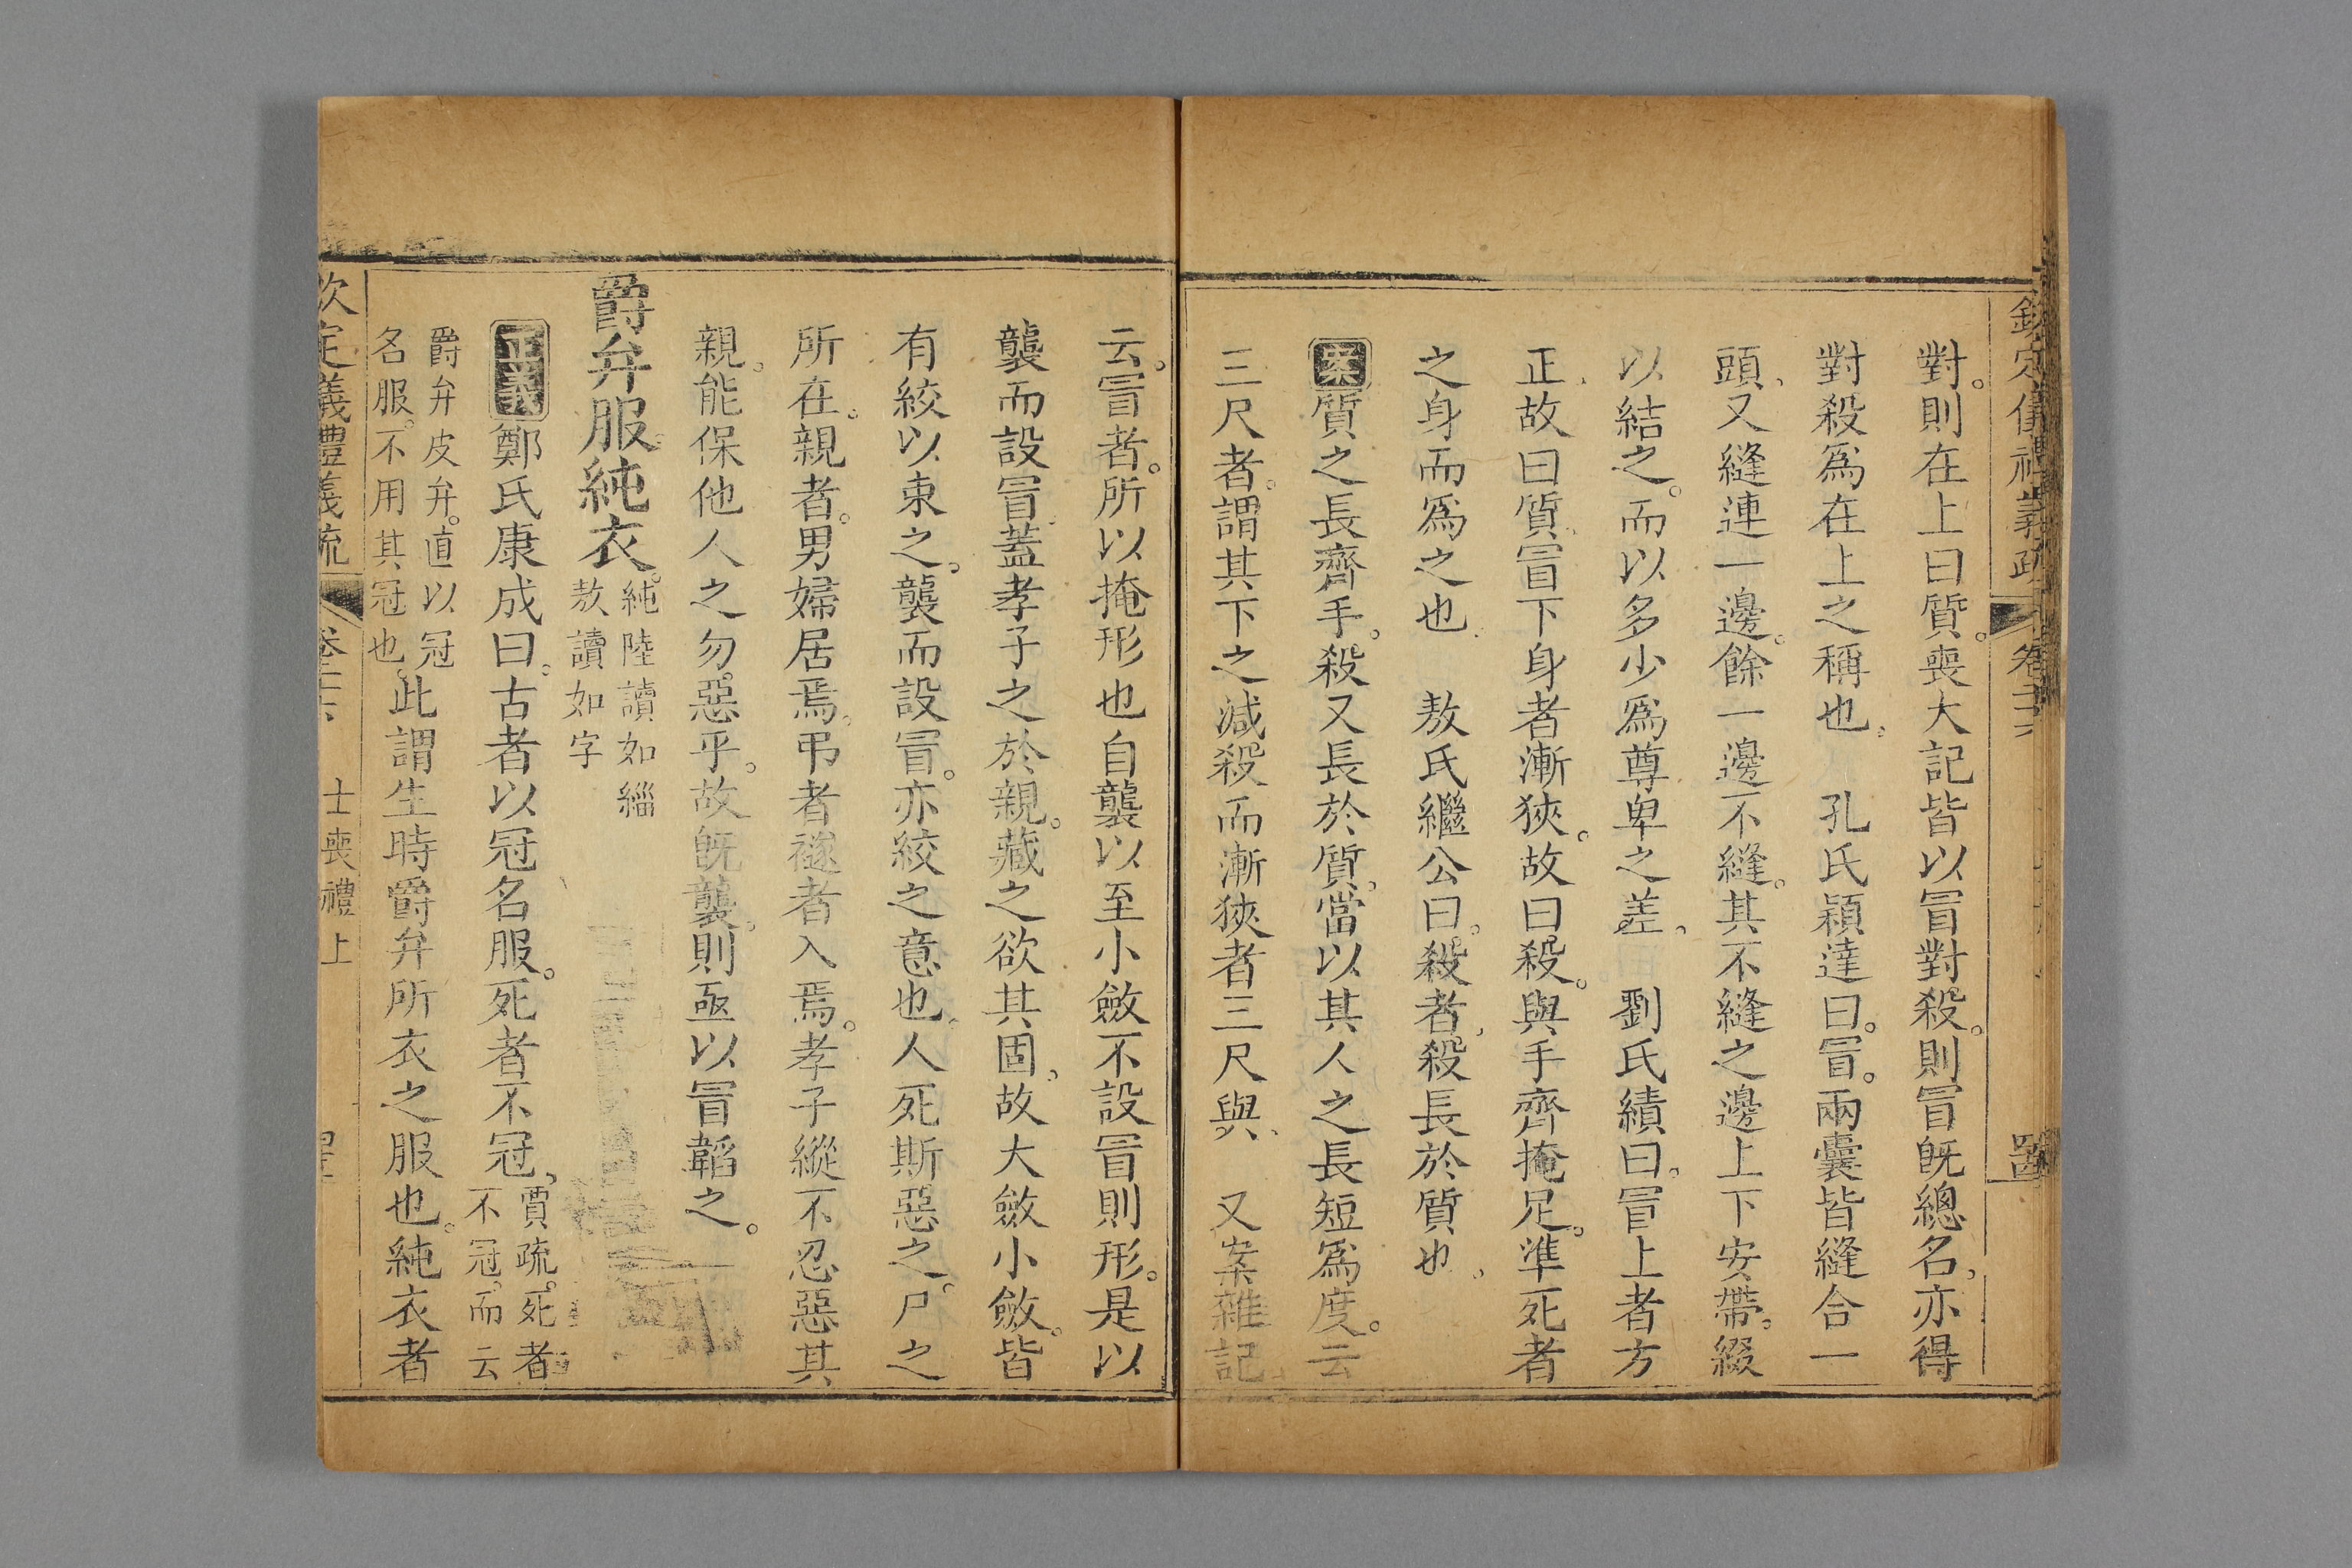 欽定儀禮義疏 卷二十六 罡
對。則在上曰質。喪大記皆以冒對殺。則冒旣總名。亦得
對殺爲在上之稱也。 孔氏穎達曰。冒。兩囊皆縫合一
頭。又縫連一邊。餘一邊不縫。其不縫之邊上下安帶。綴
以結之。而以多少爲尊卑之差。 劉氏績曰。冒上者方
正。故曰質。冒下身者漸狹。故曰殺。與手齊掩足。準死者
之身而爲之也。 敖氏繼公曰。殺者。殺長於質也。
案質之長齊手。殺又長於質。當以其人之長短爲度。云
三尺者。謂其下之減殺而漸狹者三尺與。 又案雜記
云。冒者。所以掩形也自襲以至小斂不設冒則形。是以
襲而設冒蓋孝子之於親。藏之欲其固。故大斂小斂。皆
有絞以束之。襲而設冒。亦絞之意也。人死斯惡之。尸之
所在。親者。男婦居焉。弔者襚者入焉。孝子縱不忍惡其
親。能保他人之勿惡乎。故旣襲。則亟以冒韜之。
爵弁服純衣。純陸讀如緇
敖讀如字
正義鄭氏康成曰。古者以冠名服。死者不冠。賈疏。死者
不冠。而云
爵弁皮弁。直以冠
名服。不用其冠也。此謂生時爵弁所衣之服也。純衣者
欽定儀禮義疏 卷二十六 士喪禮上